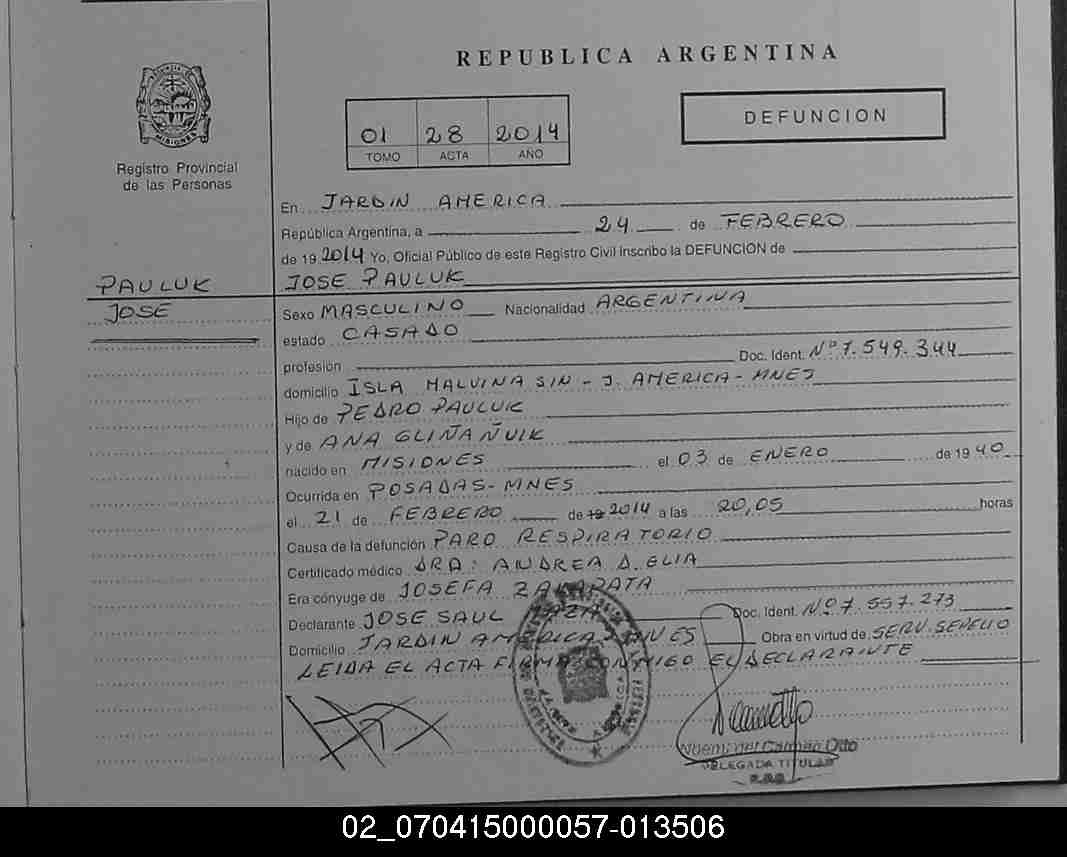 REPUBLICA ARGENTINA
01 28 2014
TOMO ACTA AÑO
DEFUNCION
MISIONES
Registro Provincial
de las Personas
En JARDIN AMERICA
República Argentina, a 24 de FEBRERO
de 19 2014 Yo, Oficial Público de este Registro Civil inscribo la DEFUNCION de
PAULUK JOSE PAULUK
JOSE Sexo MASCULINO Nacionalidad ARGENTINA
estado CASADO
profesión Doc. Ident. Nº 7.549.344
domicilio ISLA MALVINA SIN - J. AMERICA - MNES
Hijo de PEDRO PAULUK
y de ANA
nacido en MISIONES el 03 de ENERO de 19 40
Ocurrida en POSADAS - MNES
el 21 de FEBRERO de 19 2014 a las 20,05 horas
Causa de la defunción PARO RESPIRATORIO
Certificado médico DRA: ANDREA D. ELIA
Era cónyuge de JOSEFA
Declarante JOSE SAUL Doc. Ident. Nº 7.557.273
Domicilio JARDIN AMERICA - MNES Obra en virtud de SERV. SEPELIO
LEIDA EL ACTA FIRMA CONMIGO EL DECLARANTE
Noemi del Carmen Otto
DELEGADA TITULAR
02_070415000057-013506